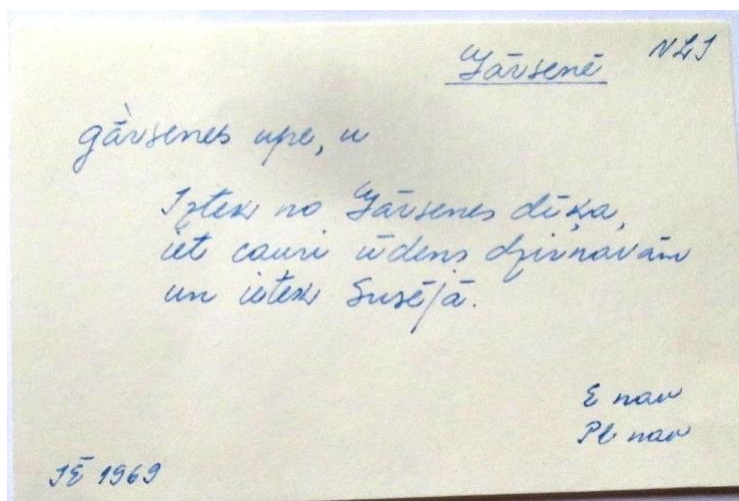 Gārsenē NLJ
gàrsenes upe, u
Iztek no Gārsenes dīķa,
iet cauri ūdens dzirnavām
un ietek Susējā.
E nav
Pl nav
IĒ 1969